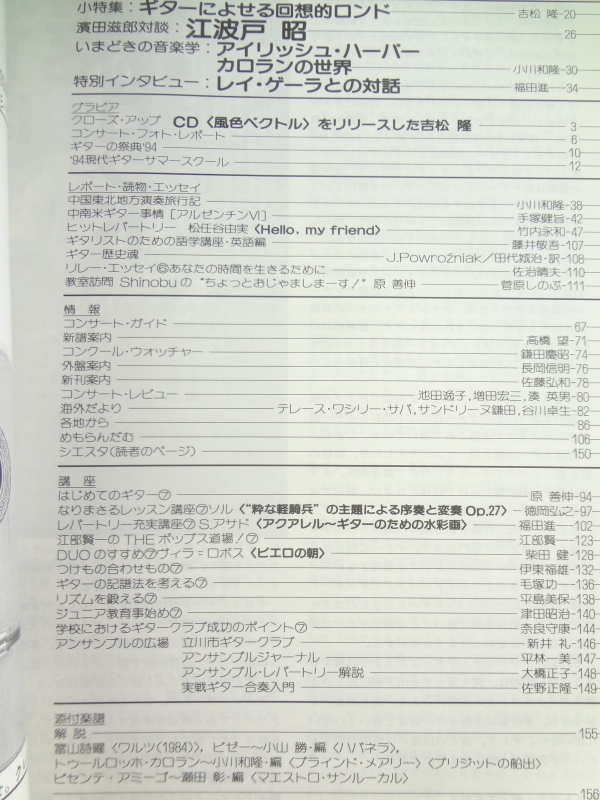 小特集：ギターによせる回想的ロンド 吉松 隆-20
濱田滋郎対談：江波戸 昭 26
いまどきの音楽学：アイリッシュ・ハーパー
カロランの世界 小川和隆-30
特別インタビュー：レイ・ゲーラとの対話 福田進一-34
グラビア
クローズ・アップ CD〈風色ベクトル〉をリリースした吉松 隆 3
コンサート・フォト・レポート 6
ギターの祭典'94 10
'94現代ギターサマースクール 12
レポート・読物・エッセイ
中国東北地方演奏旅行記 小川和隆-38
中南米ギター事情［アルゼンチンⅥ］ 手塚健旨-42
ヒットレパートリー 松任谷由実〈Hello, my friend〉 竹内永和-47
ギタリストのための語学講座・英語編 藤井敬吾-107
ギター歴史魂 J.Powroźniak／田代城治・訳-108
リレー・エッセイ⑥あなたの時間を生きるために 佐治晴夫-110
教室訪問 Shinobuの“ちょっとおじゃましまーす！” 原 善伸 菅原しのぶ-111
情 報
コンサート・ガイド 67
新譜案内 高橋 望-71
コンクール・ウォッチャー 鎌田慶昭-74
外盤案内 長岡信明-76
新刊案内 佐藤弘和-78
コンサート・レビュー 池田逸子，増田宏三，湊 英男-80
海外だより テレース・ワシリー・サバ，サンドリーヌ鎌田，谷川卓生-82
各地から 86
めもらんだむ 106
シエスタ（読者のページ） 150
講 座
はじめてのギター⑦ 原 善伸-94
なりまさるレッスン講座⑦ソル〈“粋な軽騎兵”の主題による序奏と変奏Op.27〉 徳岡弘之-97
レパートリー充実講座⑦S.アサド〈アクアレル～ギターのための水彩画〉 福田進一-102
江部賢一のTHEポップス道場！⑦ 江部賢一-123
DUOのすすめ⑦ヴィラ＝ロボス〈ピエロの朝〉 柴田 健-128
つけもの合わせもの⑦ 伊東福雄-132
ギターの記譜法を考える⑦ 毛塚功一-136
リズムを鍛える⑦ 平島美保-138
ジュニア教育事始め⑦ 津田昭治-140
学校におけるギタークラブ成功のポイント⑦ 奈良守康-144
アンサンブルの広場 立川市ギタークラブ 新井 礼-146
アンサンブルジャーナル 平林一美-147
アンサンブル・レパートリー解説 大橋正子-148
実戦ギター合奏入門 佐野正隆-149
添付楽譜
解 説 155
富山詩曜〈ワルツ(1984)〉，ビゼー～小山 勝・編〈ハバネラ〉，
トゥールロッホ・カロラン～小川和隆・編〈ブラインド・メアリー〉〈ブリジットの船出〉
ビセンテ・アミーゴ～瀬田 彰・編〈マエストロ・サンルーカル〉 156